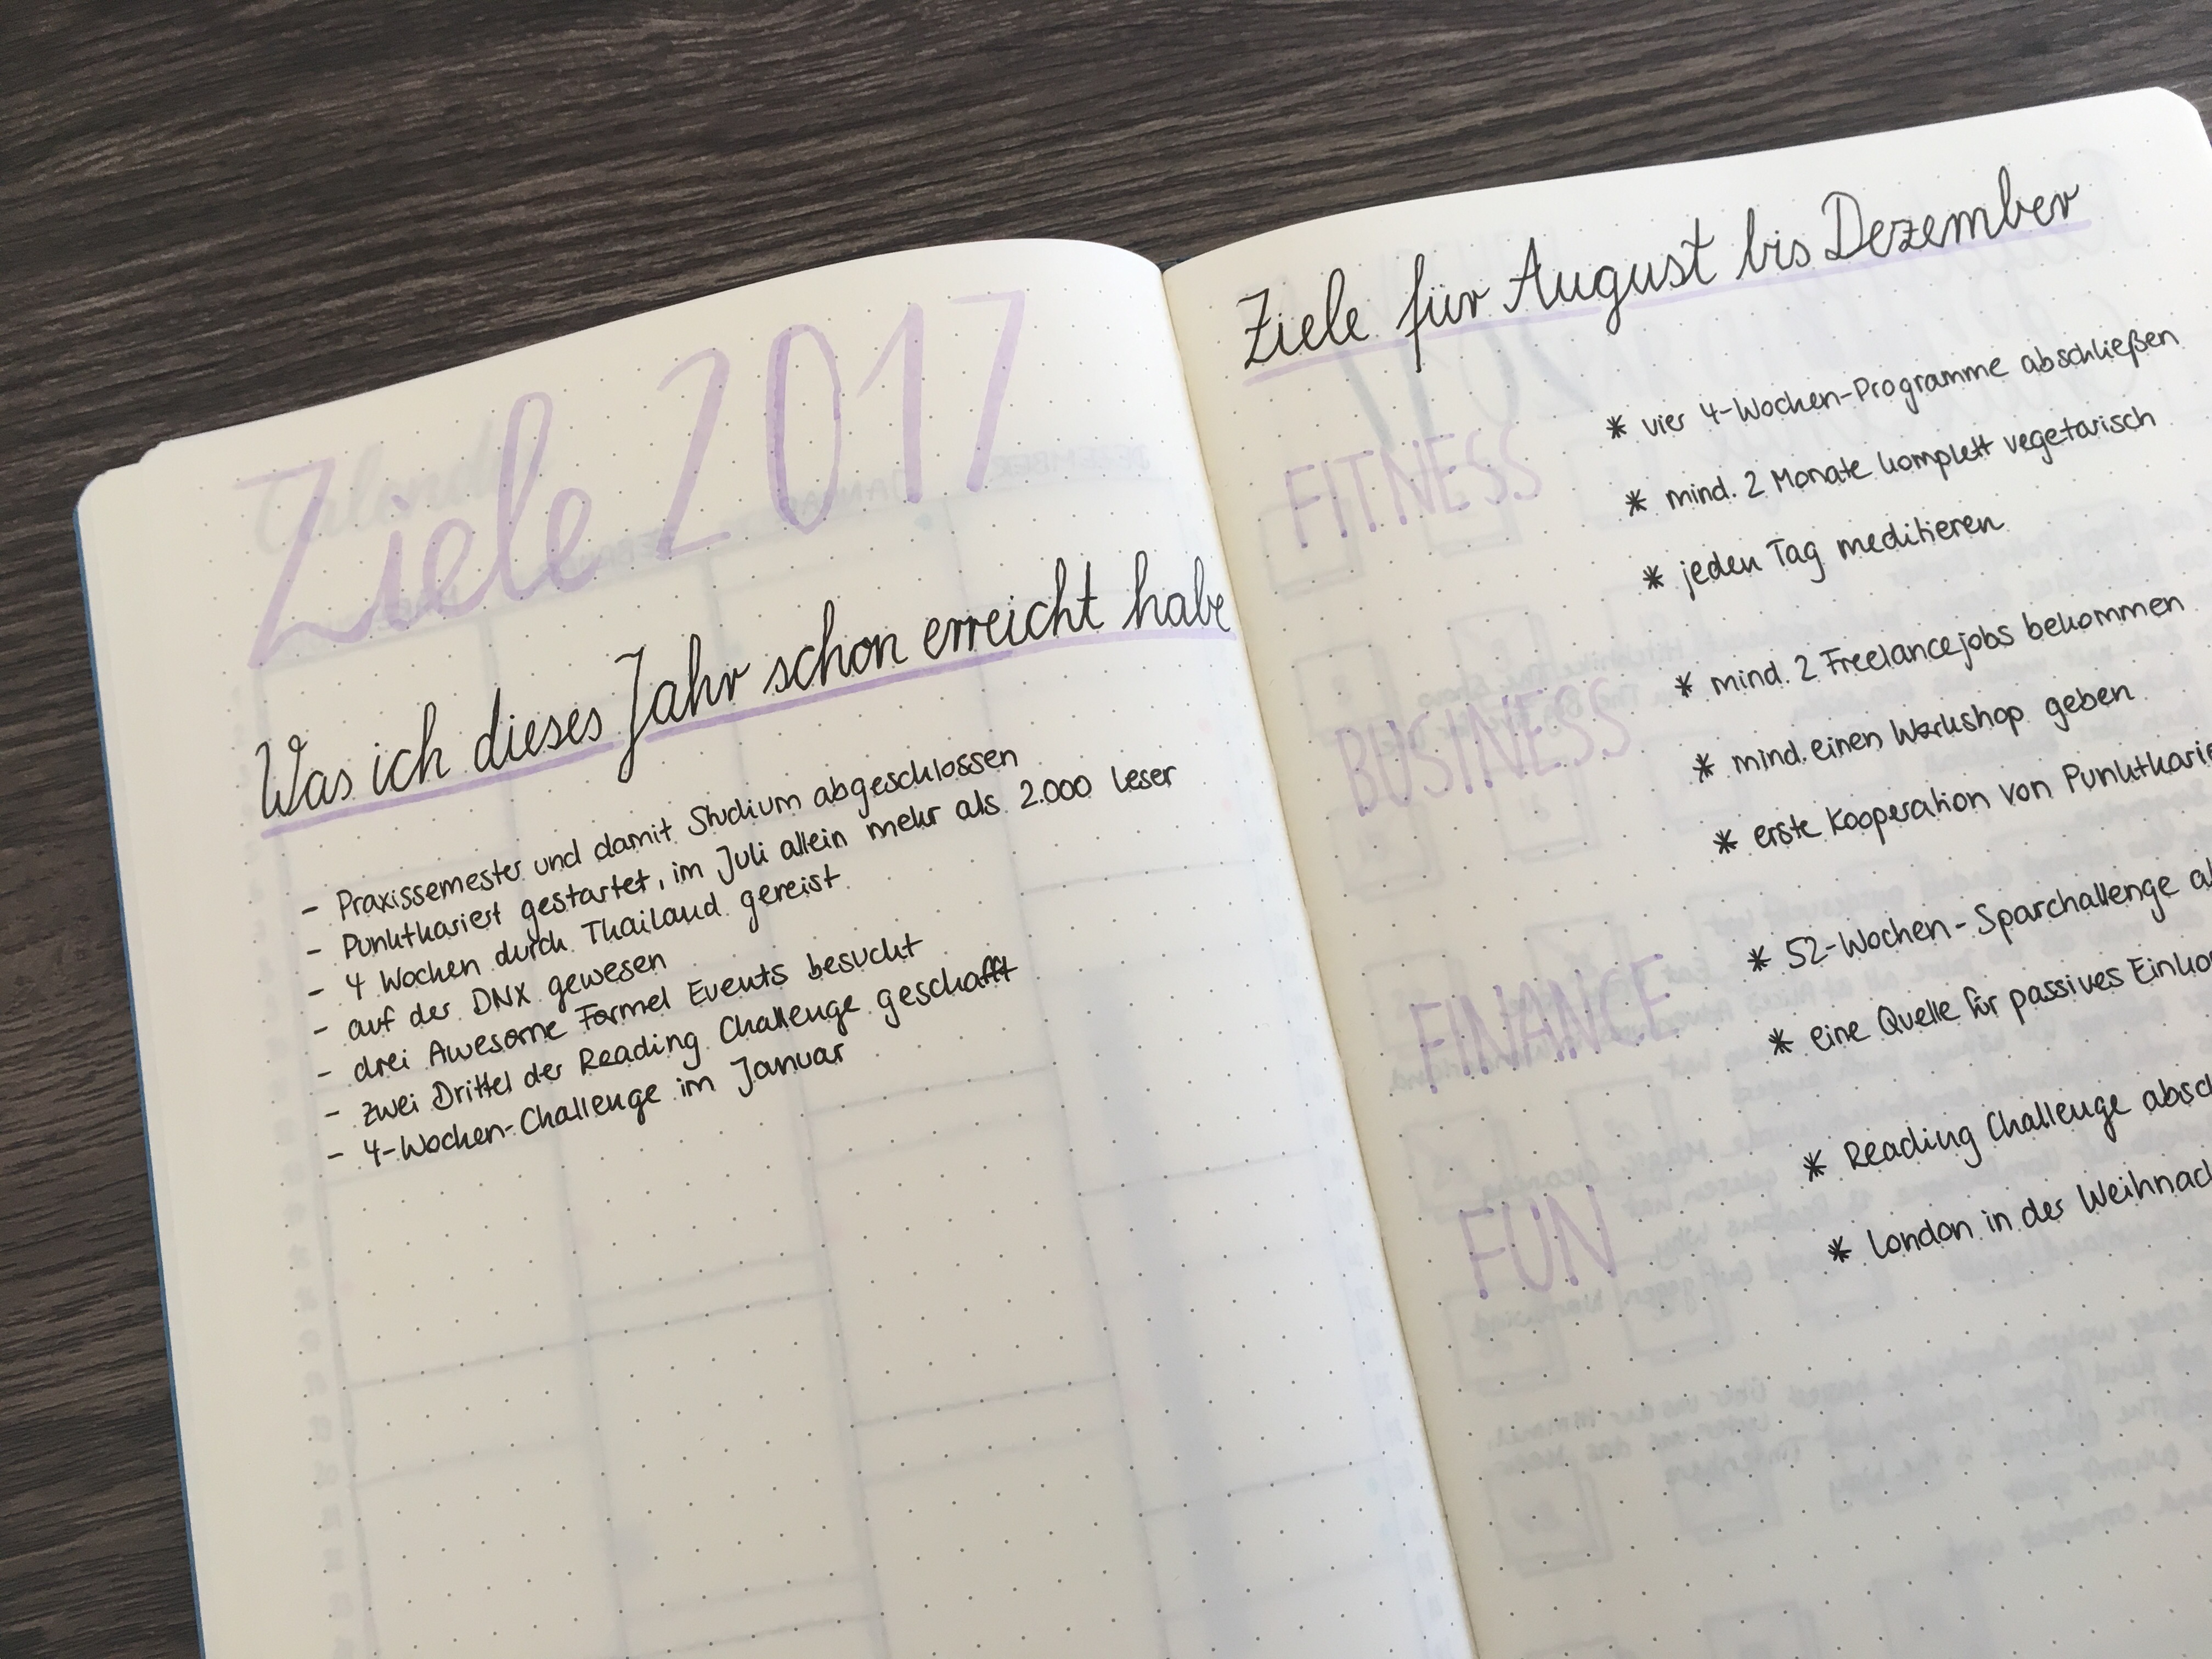 Ziele 2017
Was ich dieses Jahr schon erreicht habe
- Praxissemester und damit Studium abgeschlossen
- Punktkariert gestartet, im Juli allein mehr als 2.000 Leser
- 4 Wochen durch Thailand gereist
- auf der DNX gewesen
- drei Awesome Formel Events besucht
- zwei Drittel der Reading Challenge geschafft
- 4-Wochen-Challenge im Januar
Ziele für August bis Dezember
FITNESS
* vier 4-Wochen-Programme abschließen
* mind. 2 Monate komplett vegetarisch
* jeden Tag meditieren
BUSINESS
* mind. 2 Freelancejobs bekommen
* mind. einen Workshop geben
* erste Kooperation von Punktkarie
FINANCE
* 52-Wochen-Sparchallenge a
* eine Quelle für passives Einko
FUN
* Reading Challenge absc
* London in der Weihnac